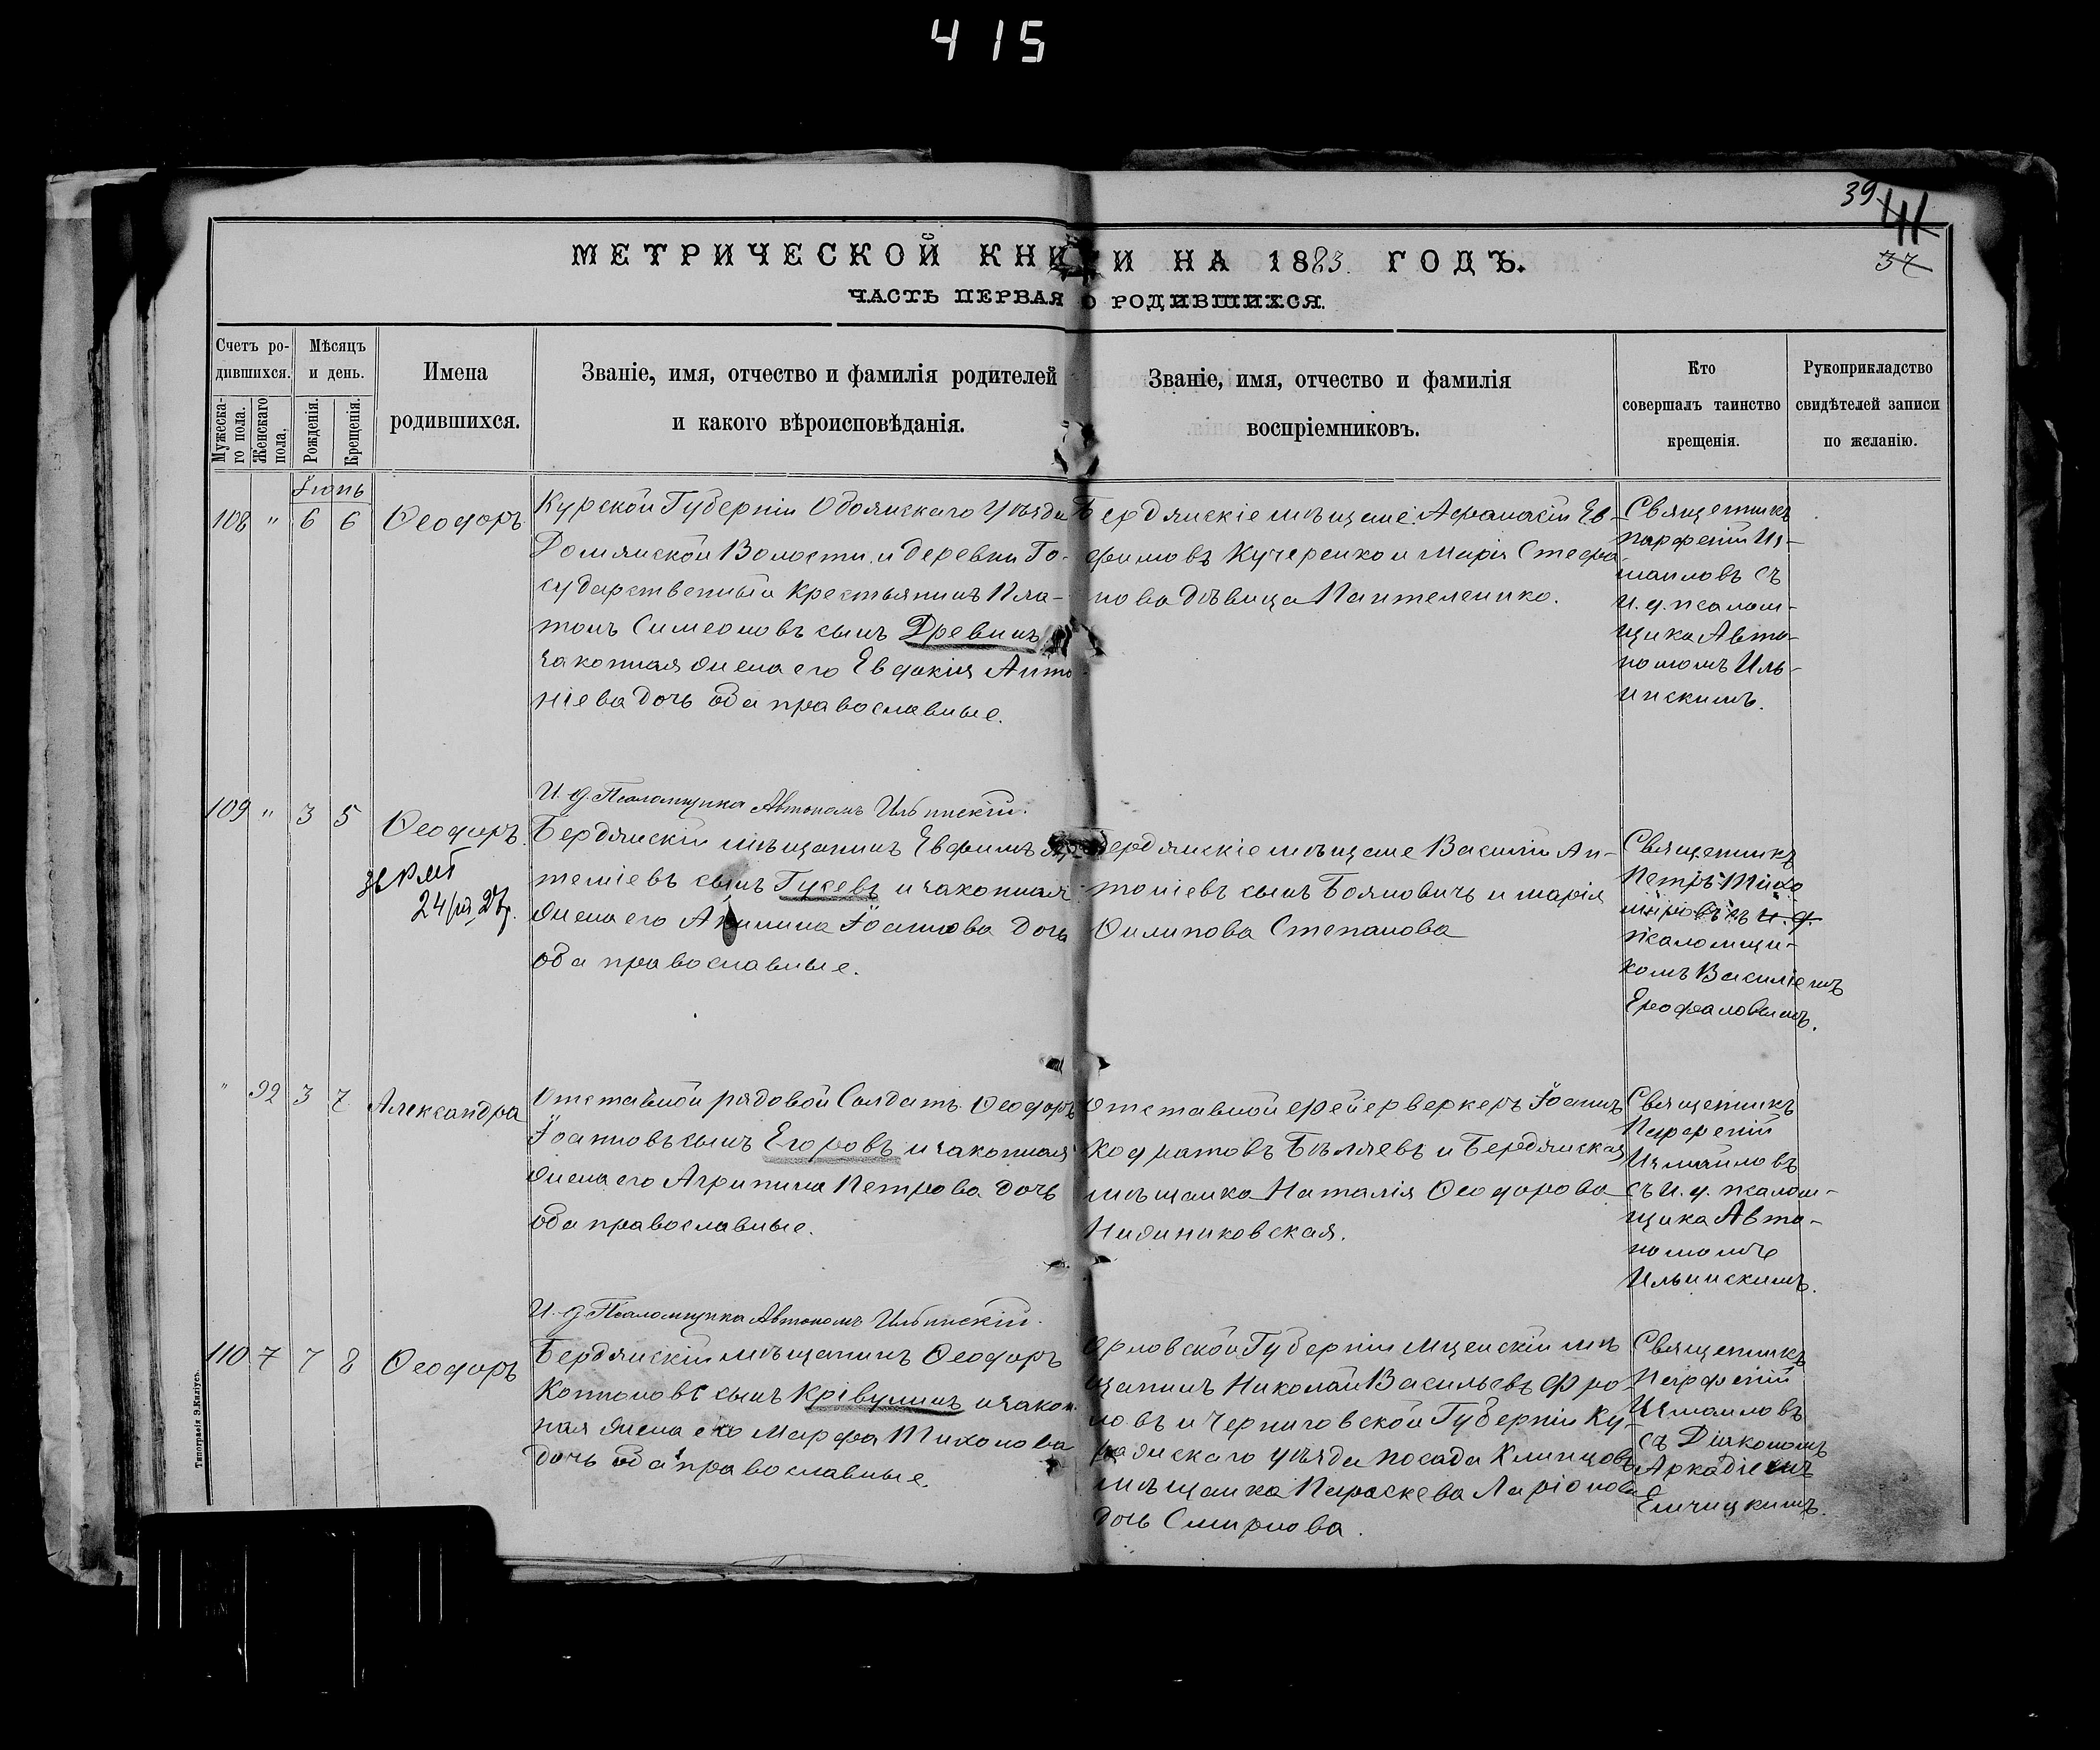 415
39 41
37
МЕТРИЧЕСКОЙ КНИГИ НА 1883. ГОДЪ.
ЧАСТЬ ПЕРВАЯ О РОДИВШИХСЯ.
Счетъ ро-
дившихся.
Мужеска-
го пола.
Женскаго
пола.
Мѣсяцъ
и день.
Рожденія.
Крещенія.
Имена
родившихся.
Званіе, имя, отчество и фамилія родителей
и какого вѣроисповѣданія.
Званіе, имя, отчество и фамилія
воспріемниковъ.
Кто
совершалъ таинство
крещенія.
Рукоприкладство
свидѣтелей записи
по желанію.
Іюнь
108 " 6 6 Ѳеодоръ
Курской Губерніи Обоянскаго Уѣзда
Волости и деревни Го-
сударственный Крестьянинъ Пла-
тонъ Симеоновъ сынъ Древинъ и
законная жена его Евдокія Анто-
ніева дочь оба православные.
Бердянскіе мѣщане: Афанасій Ев-
фимовъ Кучеренко и Марія Стефа-
нова дѣвица Пантелеенко.
Священникъ
Парфеній Из-
маиловъ съ
И. д. псалом-
щика Авто-
номомъ Иль-
инскимъ.
И. д. Псаломщика Автономъ Ильинскій.
109 " 3 5 Ѳеодоръ.
24
Бердянскій мѣщанинъ Евфимъ Ар-
теміевъ сынъ Гусевъ и законная
жена его Акилина Іоаннова дочь
оба православные.
Бердянскіе мѣщане Василій Ан-
тоніевъ сынъ Бояновичъ и Марія
Филипова Степанова
Священникъ
Петръ Тихо
міровъ съ и. д.
псаломщи-
комъ Василіемъ
Ерофаловымъ.
" 92 3 7 Александра
Отставной рядовой Солдатъ Ѳеодоръ
Іоанновъ сынъ Егоровъ и законная
жена его Агрипина Петрова дочь
оба православные.
Отставной фейерверкеръ Іоаннъ
Кодратовъ Бѣляевъ и Бердянская
мѣщанка Наталія Ѳеодорова
Священникъ
Парфеній
Измаиловъ
съ И. д. псалом-
щика Авто-
номомъ
Ильинскимъ.
И. д. Псаломщика Автономъ Ильинскій.
110 7 7 8 Ѳеодоръ
Бердянскій мѣщанинъ Ѳеодоръ
Кононовъ сынъ Кривулинъ и закон-
ная жена его Марфа Тихонова
дочь оба православные.
Орловской Губерніи Мценскій мѣ
щанинъ Николай Васильевъ Фро-
ловъ и Черниговской Губерніи Су-
ражскаго уѣзда посада Клинцовъ
мѣщанка Параскева Ларіонова
дочь Смирнова.
Священникъ
Парфеній
Измаиловъ
съ Діакономъ
Аркадіемъ
Еничицкимъ.
Типографія Э. Киліусъ.